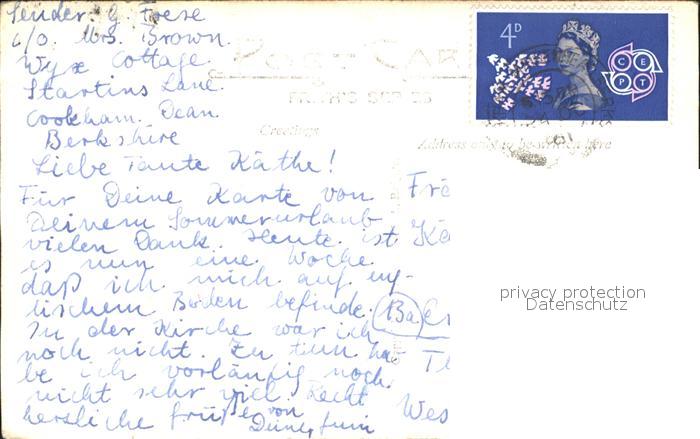 Sender: G. Frese
c/o. Mrs. Brown.
Wyx Cottage.
Startins Lane.
Cookham. Dean.
Berkshire
POST CARD
FRITH'S SERIES
Greetings
Address only to be written here
4D
CEPT
Liebe Tante Käthe!
Für Deine Karte von
Deinem Sommerurlaub
vielen Dank. Heute ist
es nun eine Woche
daß ich mich auf eng-
lischem Boden befinde.
In der Kirche war ich
noch nicht. Zu tun ha-
be ich vorläufig noch
nicht sehr viel. Recht
herzliche Grüße von
Deiner
Frä
(Ba)
Wes
privacy protection
Datenschutz